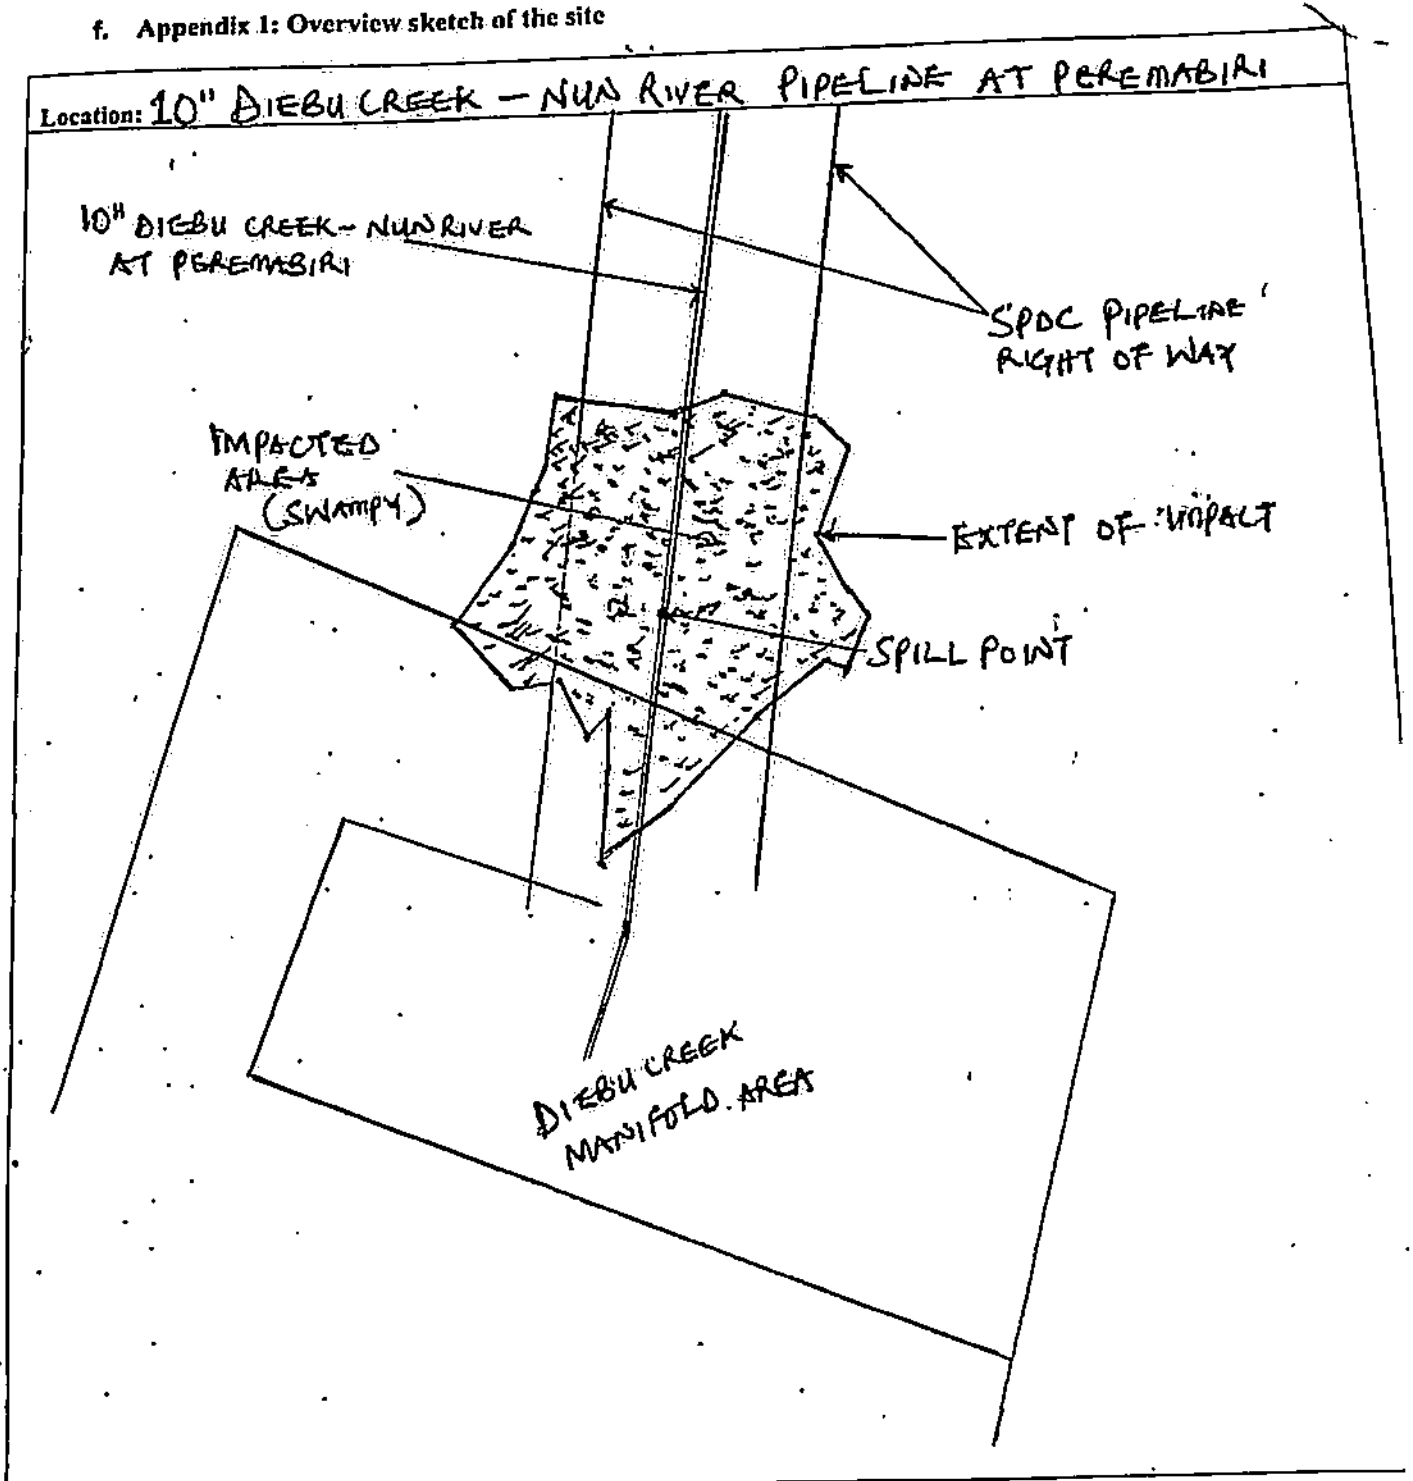 f. Appendix 1: Overview sketch of the site
Location: 10" DIEBU CREEK – NUN RIVER PIPELINE AT PEREMABIRI
10" DIEBU CREEK – NUN RIVER
AT PEREMABIRI
SPDC PIPELINE
RIGHT OF WAY
IMPACTED
AREA
(SWAMPY)
EXTENT OF IMPACT
SPILL POINT
DIEBU CREEK
MANIFOLD AREA